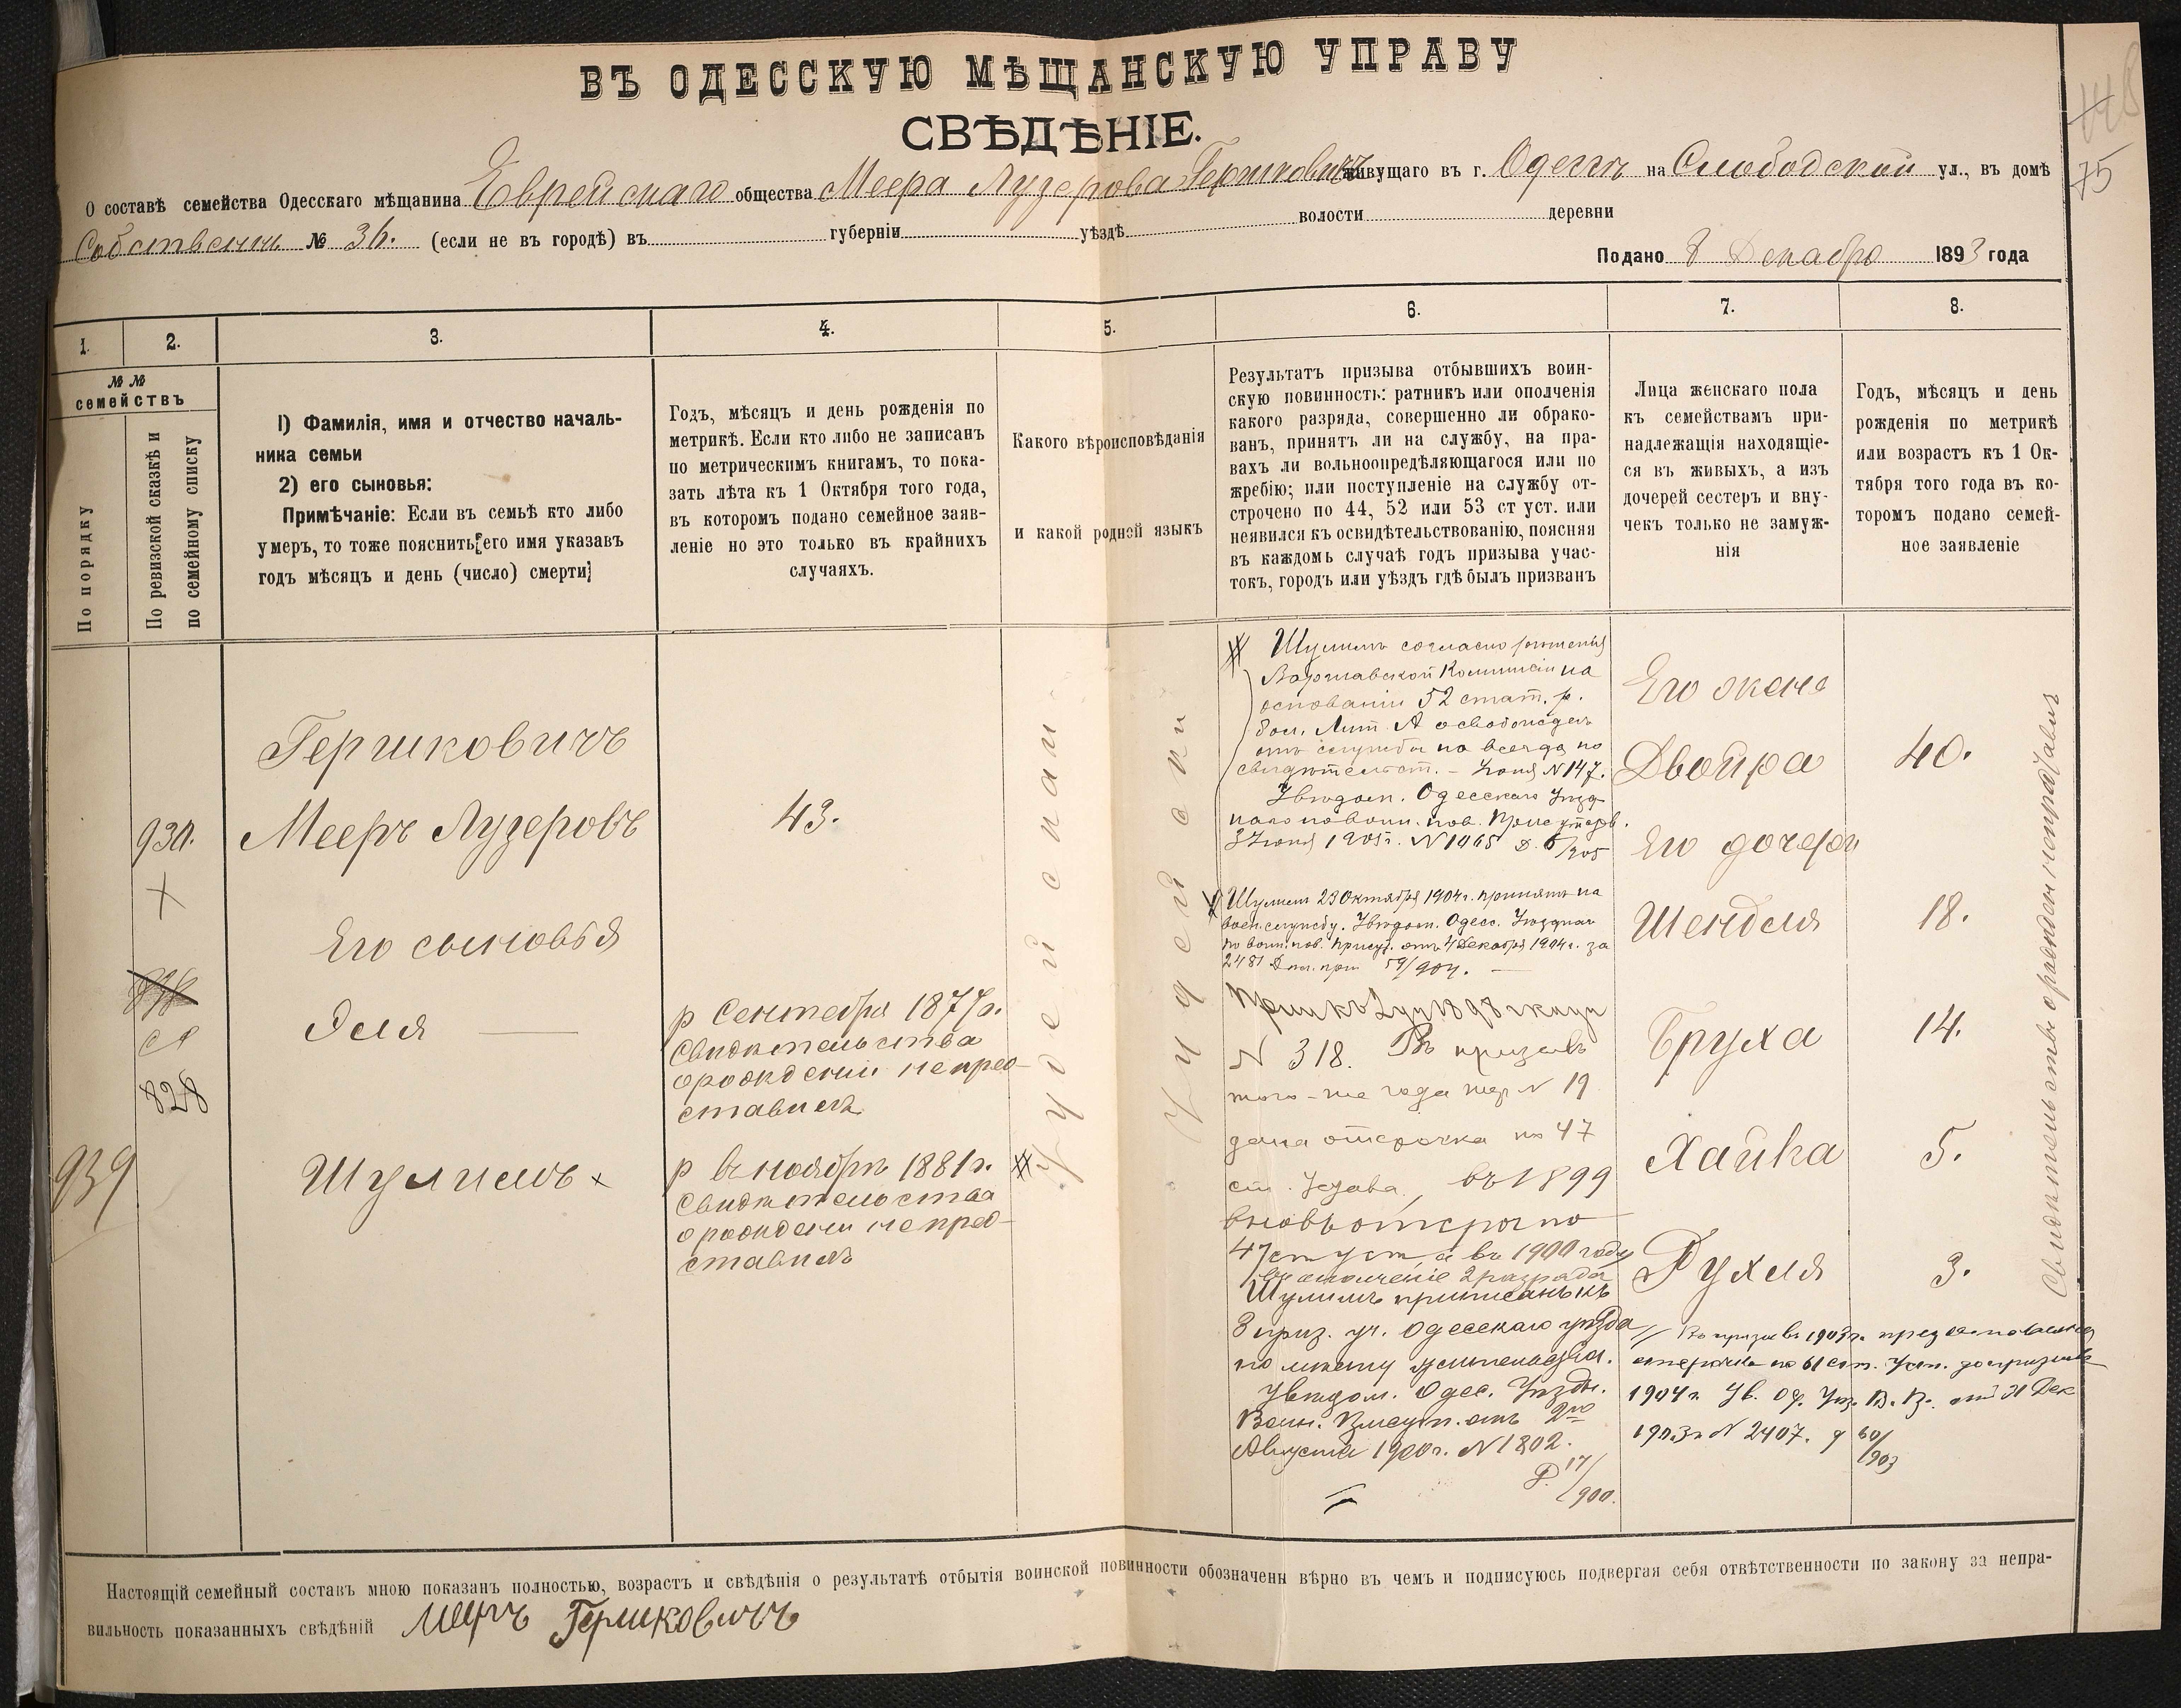 ВЪ ОДЕССКУЮ МѢЩАНСКУЮ УПРАВУ
СВѢДѢНІЕ.
О составѣ семейства Одесскаго мѣщанина Еврейскаго общества Меера Лузерова Гершковичъ живущаго въ г. Одессѣ на Слободской ул., въ домѣ
Собственнѣ № 36. (если не въ городѣ) въ губерніи уѣздѣ волости деревни
Подано 8 Декабря 1893 года
75
1.
2.
3.
4.
5.
6.
7.
8.
№ №
семействъ
По порядку
По ревизской сказкѣ и
по семейному списку
1) Фамилія, имя и отчество началь-
ника семьи
2) его сыновья:
Примѣчаніе: Если въ семьѣ кто либо
умеръ, то тоже пояснить его имя указавъ
годъ мѣсяцъ и день (число) смерти
Годъ, мѣсяцъ и день рожденія по
метрикѣ. Если кто либо не записанъ
по метрическимъ книгамъ, то пока-
зать лѣта къ 1 Октября того года,
въ которомъ подано семейное заяв-
леніе но это только въ крайнихъ
случаяхъ.
Какого вѣроисповѣданія
и какой родной языкъ
Результатъ призыва отбывшихъ воин-
скую повинность: ратникъ или ополченія
какого разряда, совершенно ли обрако-
ванъ, принятъ ли на службу, на пра-
вахъ ли вольноопредѣляющагося или по
жребію; или поступленіе на службу от-
строчено по 44, 52 или 53 ст уст. или
неявился къ освидѣтельствованію, поясняя
въ каждомъ случаѣ годъ призыва учас-
токъ, городъ или уѣздъ гдѣ былъ призванъ
Лица женскаго пола
къ семействамъ при-
надлежащія находящіе-
ся въ живыхъ, а изъ
дочерей сестеръ и вну-
чекъ только не замуж-
нія
Годъ, мѣсяцъ и день
рожденія по метрикѣ
или возрастъ къ 1 Ок-
тября того года въ ко-
торомъ подано семей-
ное заявленіе
930.
828
939
Гершковичъ
Мееръ Лузеровъ
Его сыновья
Эля
Шулимъ x
43.
р Сентября 1877г.
Свидѣтельства
о рожденіи не пред-
ставилъ
р въ ноябрѣ 1881г.
Свидѣтельства
о рожденіи не пред-
ставилъ
Іудейскаго
Іудейски
Шулимъ согласно рѣшенія
Варшавской Коммисіи на
основаніи 52 стат. р.
бол. Лит. А освобожденъ
отъ службы на всегда по
свидѣтельст. – Іюня N 147.
Увѣдом. Одесскаго Уѣзд-
наго по воин. пов. Присутств.
3 Іюня 1905г. N 1465 Д. 6/905
Шулимъ 23 Октября 1904г. принятъ на
воен. службу. Увѣдом. Одесс. Уѣзднаго
по воин. пов. присут. отъ 4 Декабря 1904г. за
2481 59/904.
N 318. Въ призывъ
того-же года жер N 19
дана отсрочка по 47
ст. Устава, въ 1899
вновь отсроч по
47 ст уст, а въ 1900 году
въ ополченіе 2 разряда
Шулимъ приписанъ къ
3 приз. уч. Одесскаго уѣзда
по мѣсту жительства.
Увѣдом. Одес. Уѣздн.
Воин. Присут. отъ 2го
Августа 1900г. N 1802.
Д. 17/900.
Его жена
Двойра
Его дочери
Шендля
Бруха
Хайка
Рухля
40.
18.
14.
5.
3.
Въ призывъ 1903г. предоставлена
отсрочка по 61 ст. Уст. до призыва
1904г. Ув. Од. Уѣз. В. П. отъ 31 Дек
1903г N 2407. д 60/903
Свидѣтельствъ о рожденіи не представилъ
Настоящій семейный составъ мною показанъ полностью, возрастъ и свѣдѣнія о результатѣ отбытія воинской повинности обозначены вѣрно въ чемъ и подписуюсь подвергая себя отвѣтственности по закону за непра-
вильность показанныхъ свѣдѣній Мееръ Гершковичъ